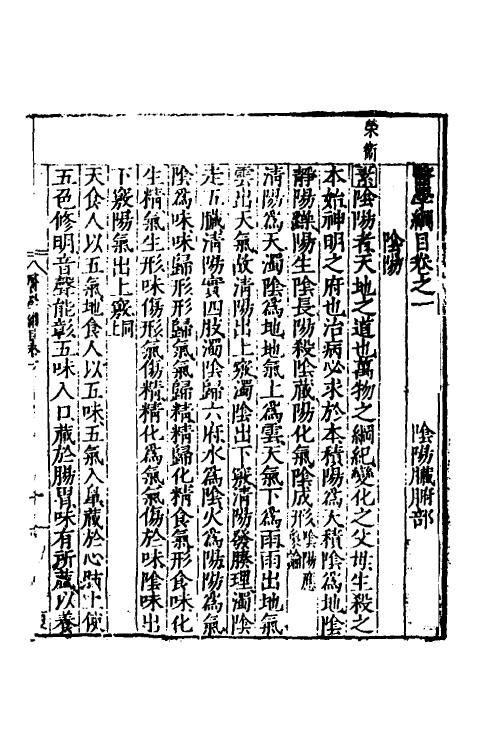 醫學綱目卷之一　陰陽臟腑部
陰陽
榮衛
素陰陽者天地之道也萬物之綱紀變化之父母生殺之
本始神明之府也治病必求於本積陽為天積陰為地陰
靜陽躁陽生陰長陽殺陰藏陽化氣陰成形陰陽應象論
清陽為天濁陰為地地氣上為雲天氣下為雨雨出地氣
雲出天氣故清陽出上竅濁陰出下竅清陽發腠理濁陰
走五臟清陽實四肢濁陰歸六府水為陰火為陽陽為氣
陰為味味歸形形歸氣氣歸精精歸化精食氣形食味化
生精氣生形味傷形氣傷精精化為氣氣傷於味陰味出
下竅陽氣出上竅同上
天食人以五氣地食人以五味五氣入鼻藏於心肺上使
五色修明音聲能彰五味入口藏於腸胃味有所藏以養
醫學綱目卷一